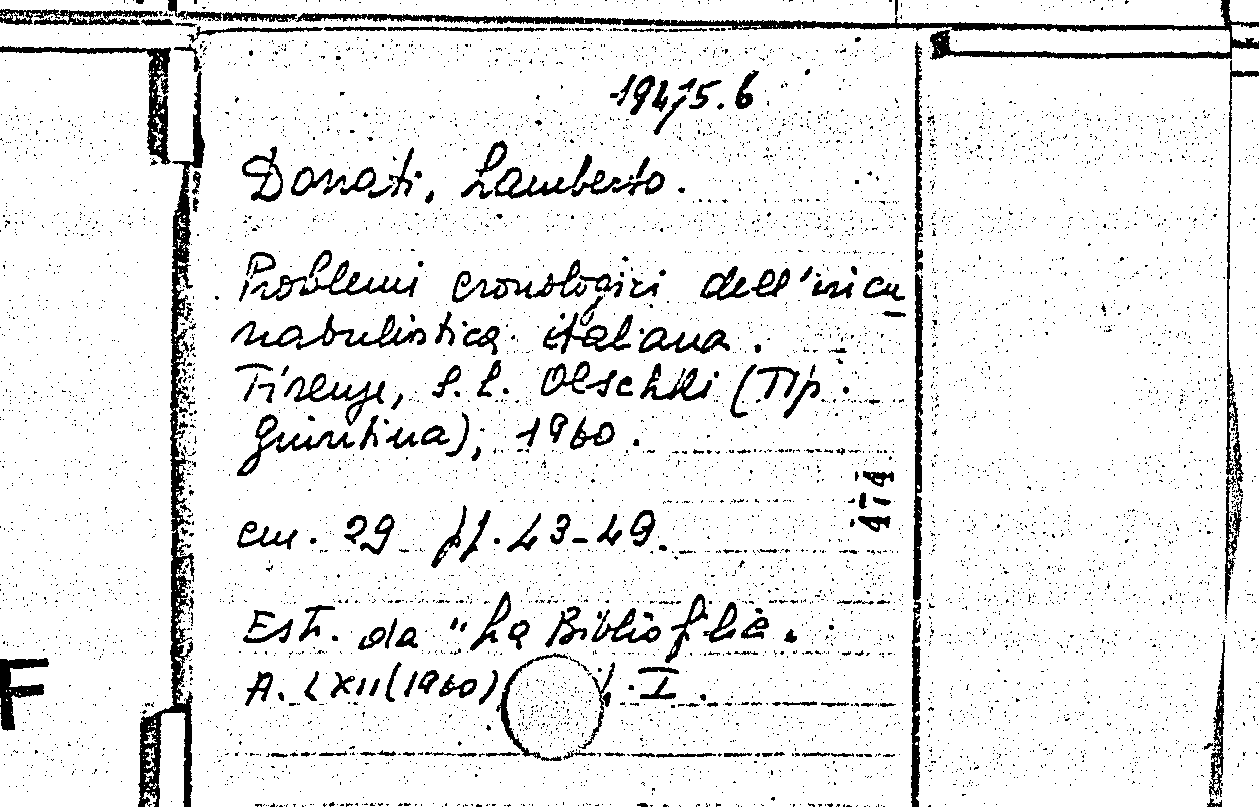 19475.6
Donati, Lamberto.
Problemi cronologici dell'incu_
nabulistica italiana.
Firenze, S. L. Olschki (Tip.
Giuntina), 1960.
cm. 29 pp. 43-49.
474
Estr. da "La Bibliofilia.
A. LXII (1960), I.
F